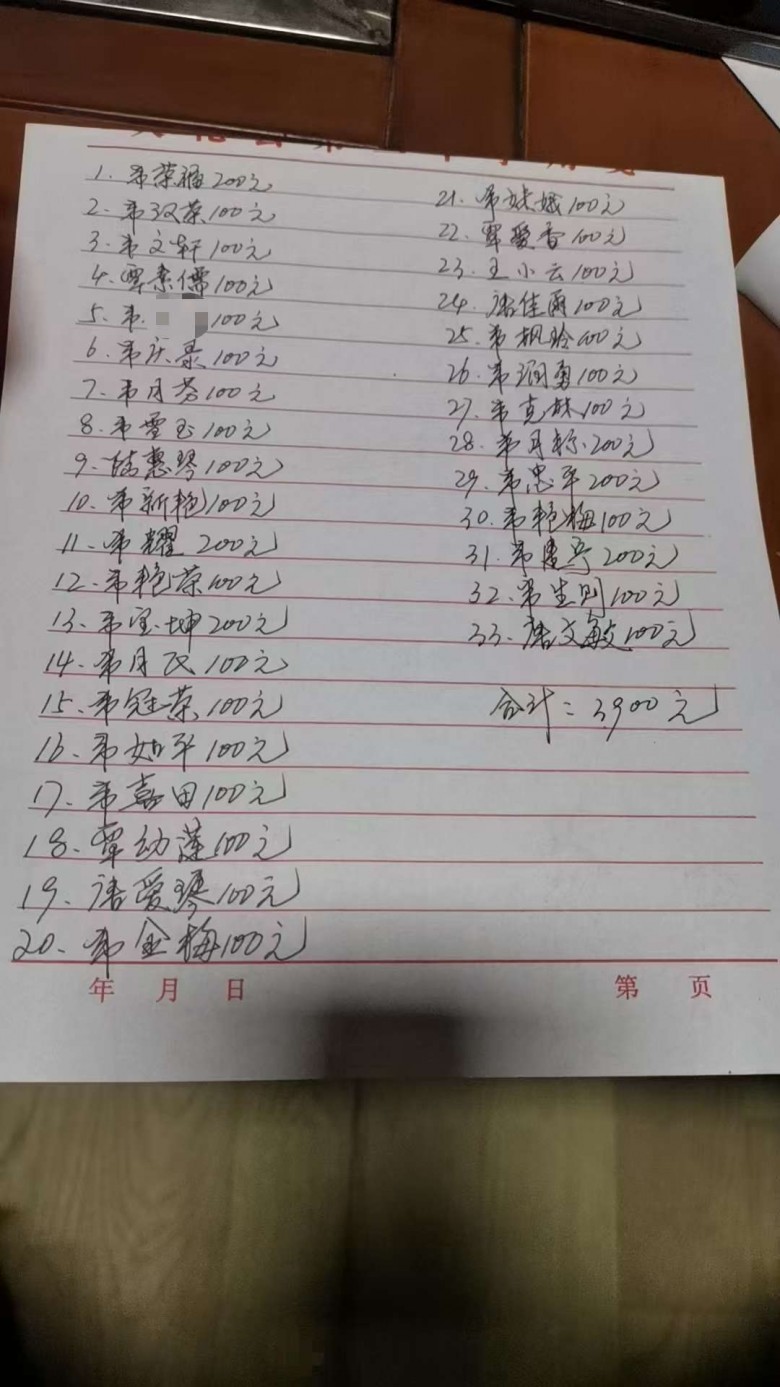 1. 韦荣福200元
2. 韦汉荣100元
3. 韦文轩100元
4. 覃素儒100元
5. 韦 100元
6. 韦庆豪100元
7. 韦月芬100元
8. 韦雪玉100元
9. 陆惠琴100元
10. 韦新艳100元
11. 韦耀 200元
12. 韦艳荣100元
13. 韦宝坤200元
14. 韦月 100元
15. 韦冠荣100元
16. 韦如平100元
17. 韦嘉田100元
18. 覃幼莲100元
19. 唐爱琴100元
20. 韦金梅100元
21. 韦妹娥100元
22. 覃爱香100元
23. 王小云100元
24. 唐佳雨100元
25. 韦枫玲100元
26. 韦润勇100元
27. 韦克妹100元
28. 韦月 200元
29. 韦忠平200元
30. 韦艳梅100元
31. 韦 200元
32. 韦生则100元
33. 唐文敏100元
合计:3900元
年 月 日 第 页